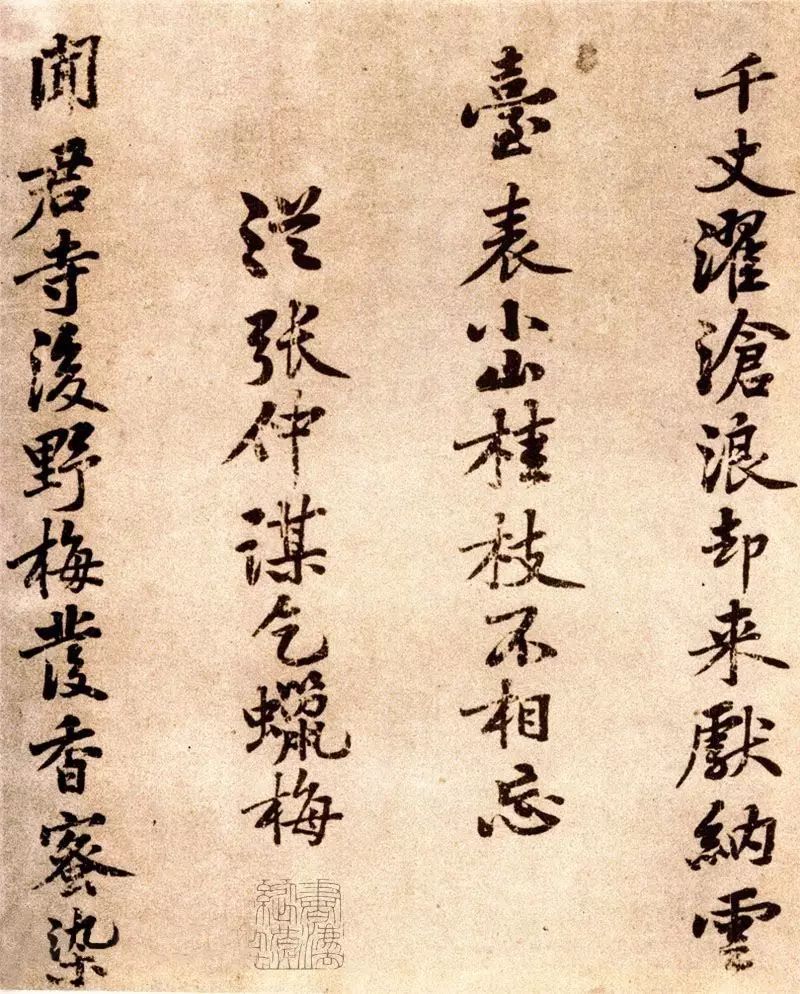 千丈濯滄浪却来獻納雲
臺表小山桂枝不相忘
從张仲謀乞蠟梅
聞君寺後野梅發香蜜染